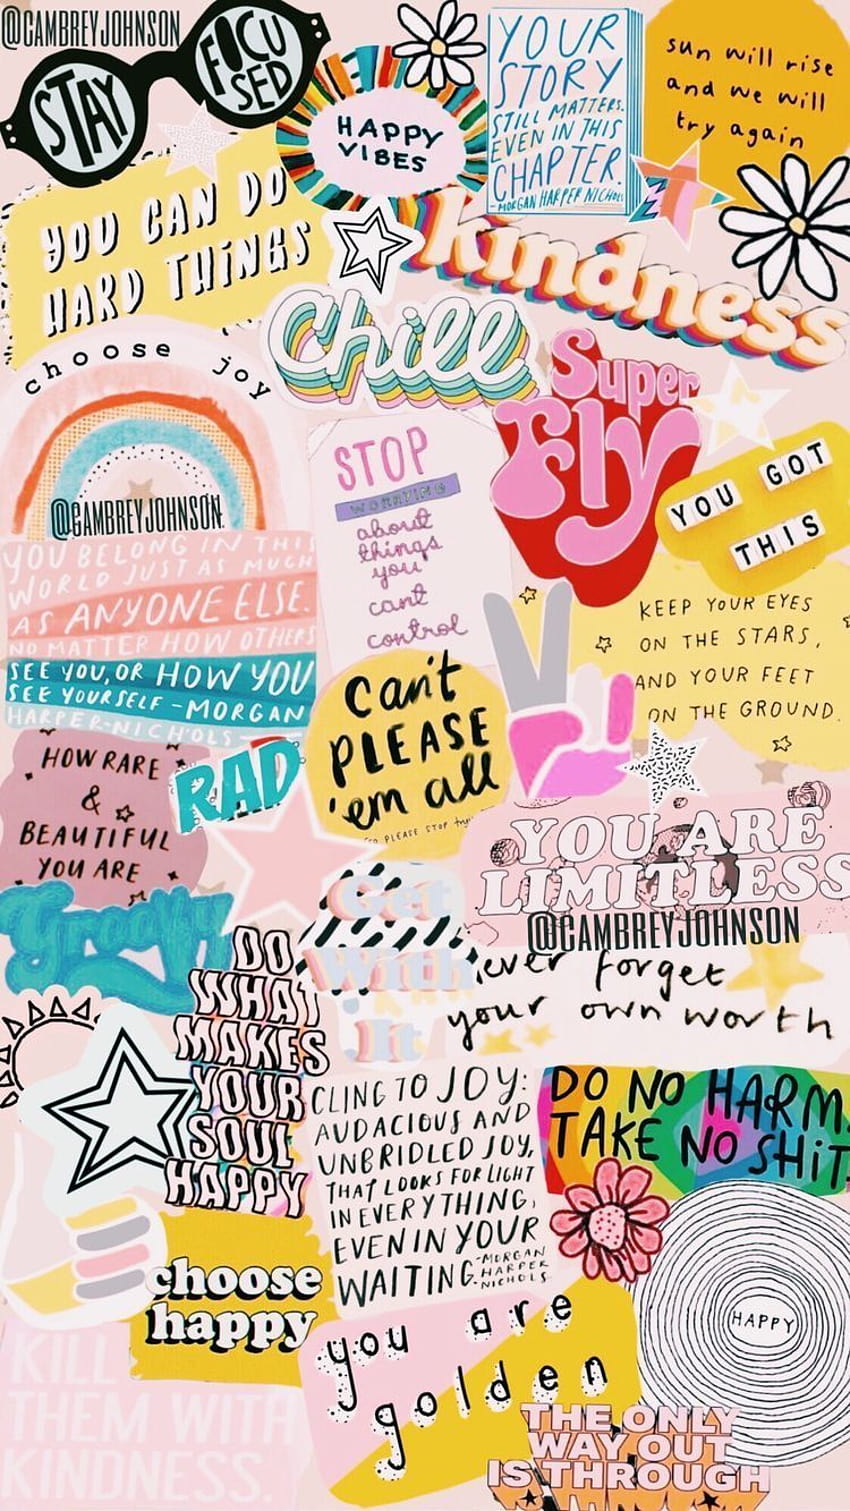 @CAMBREYJOHNSON
STAY
FOCU
SED
HAPPY
VIBES
YOUR
STORY
STILL MATTERS.
EVEN IN THIS
CHAPTER.
-MORGAN HARPER NICHOL
sun will rise
and we will
try again
YOU CAN DO
HARD THINGS
kindness
Chill
choose joy
@CAMBREYJOHNSON
Super
Fly
STOP
WORRYING
about
things
you
cant
control
YOU GOT
THIS
YOU BELONG IN THIS
WORLD JUST AS MUCH
AS ANYONE ELSE.
NO MATTER HOW OTHERS
SEE YOU, OR HOW YOU
SEE YOURSELF -MORGAN
HARPER-NICHOLS-
KEEP YOUR EYES
ON THE STARS,
AND YOUR FEET
ON THE GROUND.
can't
PLEASE
'em all
PLEASE STOP
HOW RARE
&
BEAUTIFUL
YOU ARE
RAD
YOU ARE
LIMITLESS
@CAMBREYJOHNSON
Groovy
Get
With
It
DO
WHAT
MAKES
YOUR
SOUL
HAPPY
ever forget
your own worth
CLING TO JOY:
AUDACIOUS AND
UNBRIDLED JOY,
THAT LOOKS FOR LIGHT
IN EVERYTHING,
EVEN IN YOUR
WAITING -MORGAN
HARPER
NICHOLS
DO NO HARM.
TAKE NO SHIT.
choose
happy
HAPPY
you are
golden
KILL
THEM WITH
KINDNESS.
THE ONLY
WAY OUT
IS THROUGH